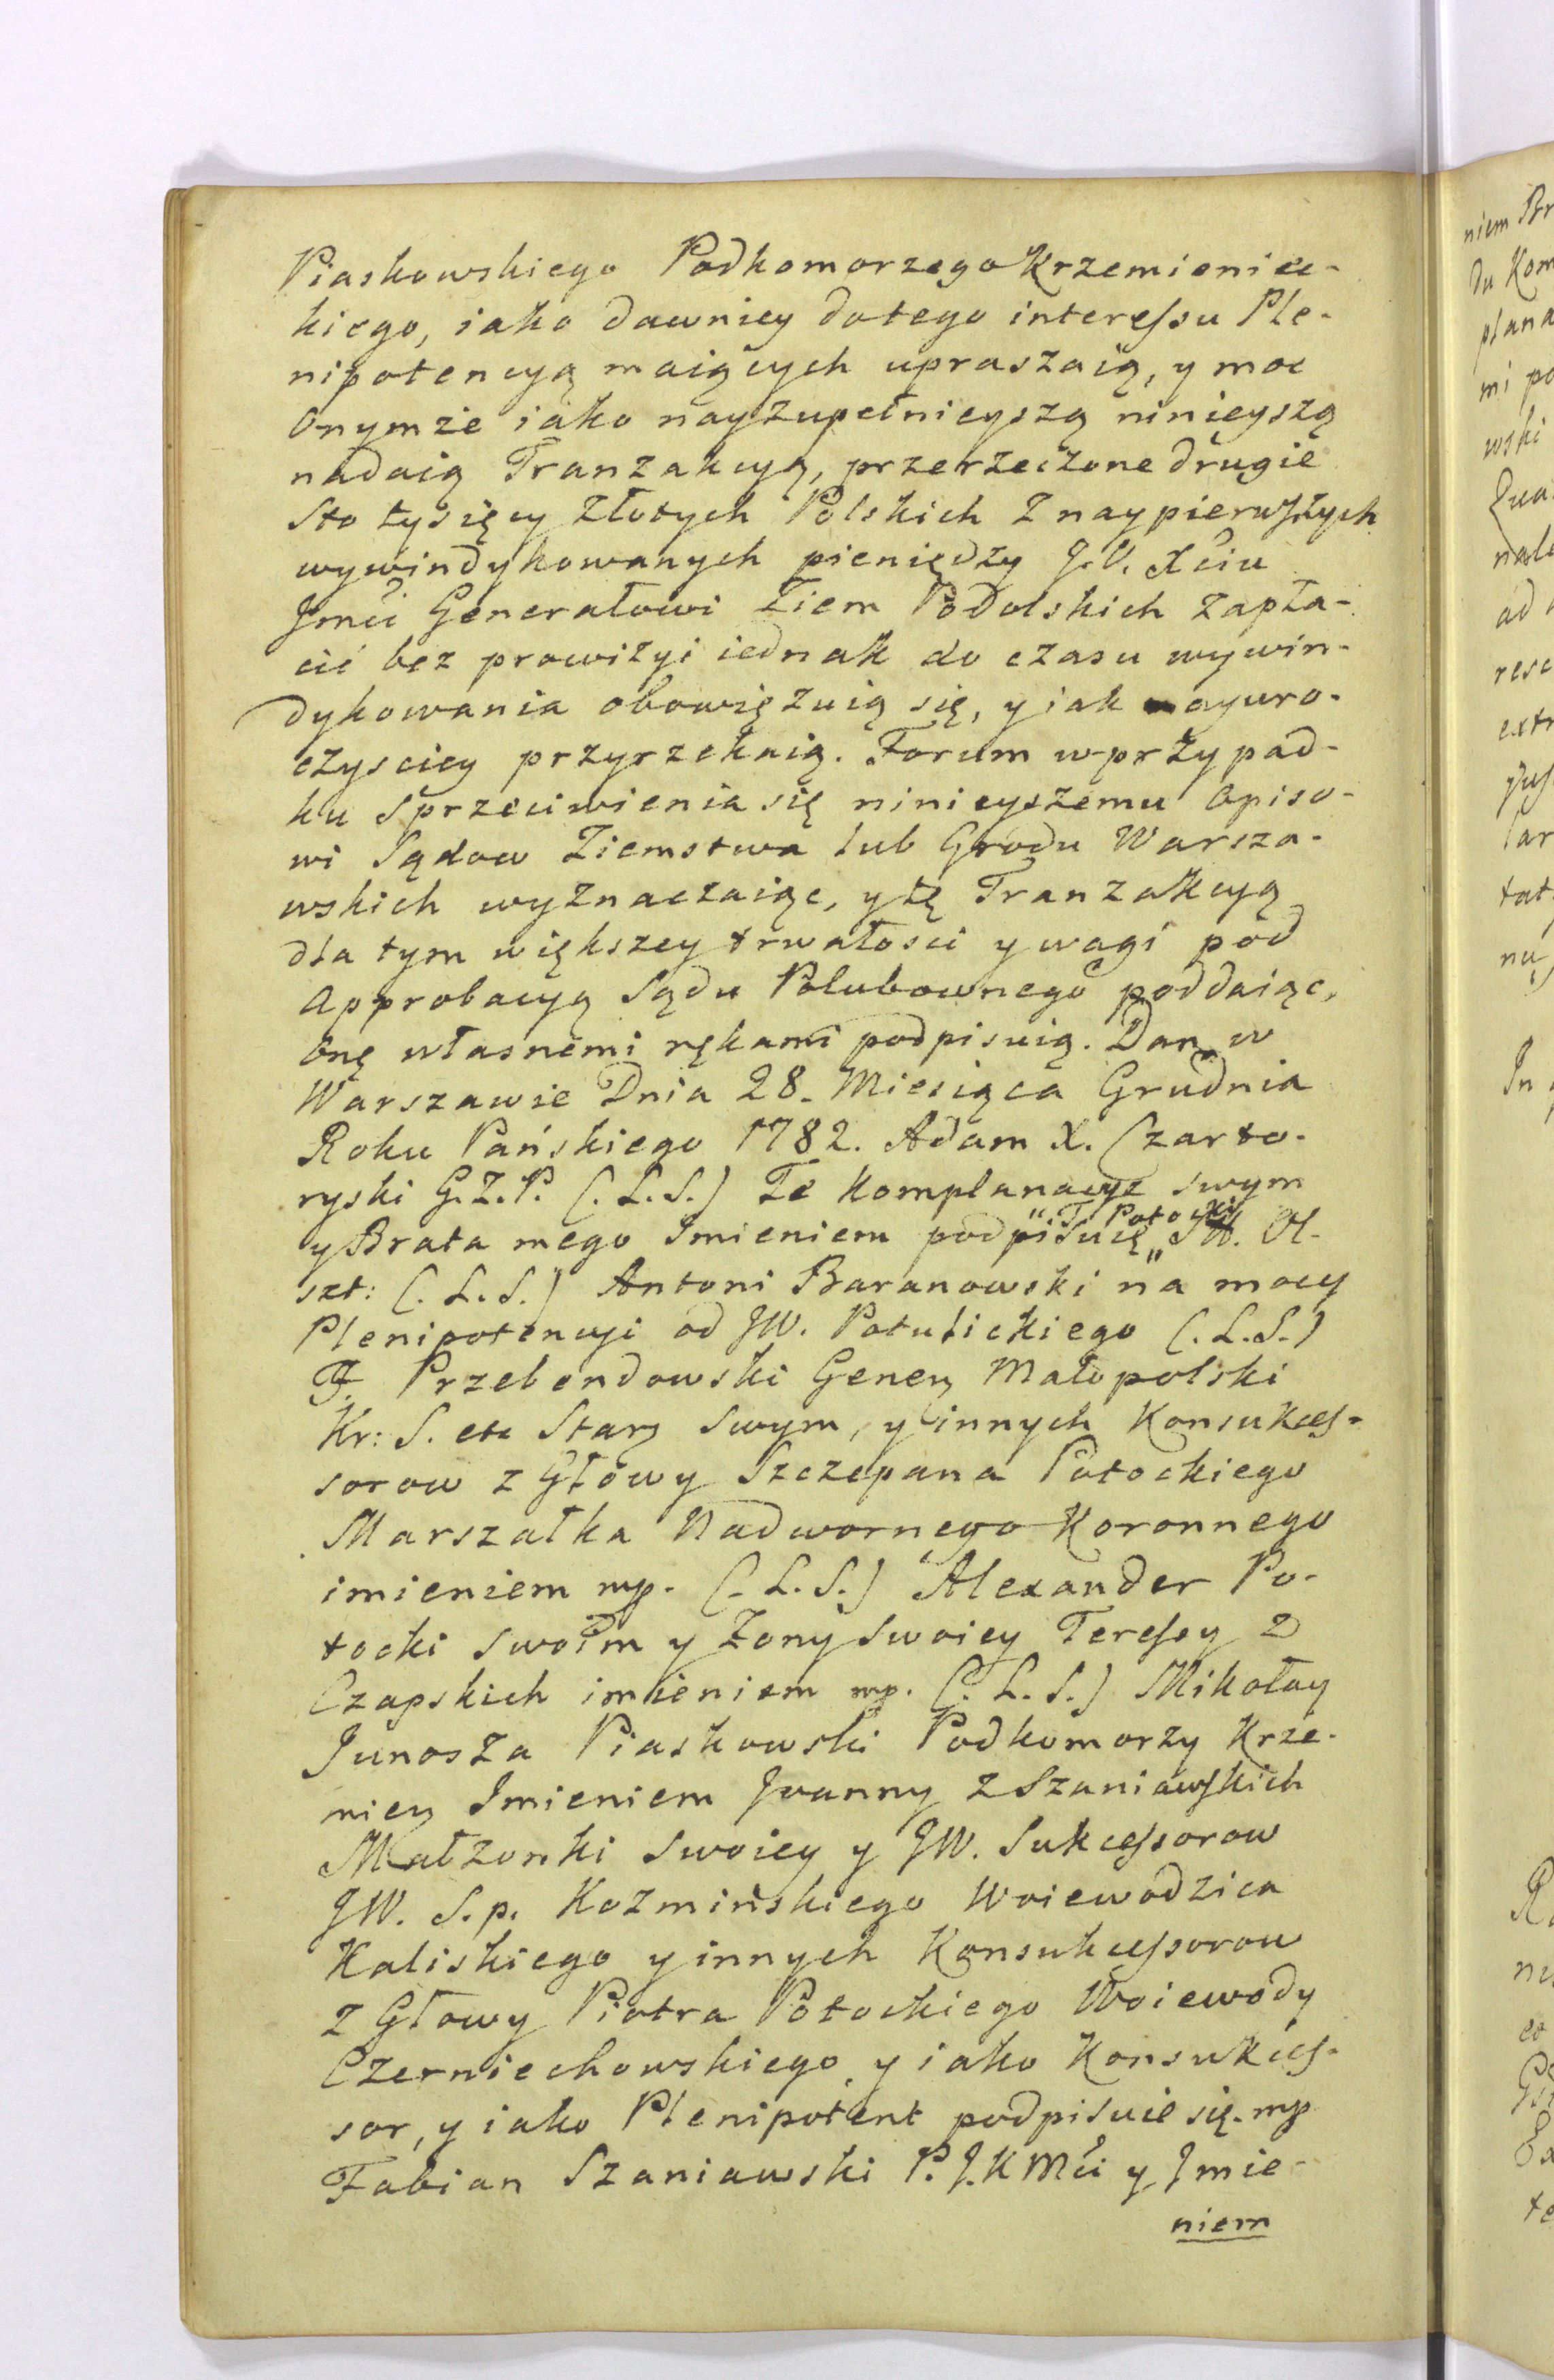 Piaskowskiego Podkomorzego Krzemieniec-
kiego, iako dawniey dotego interessu Ple-
nipotencyą maiących upraszaią, y moc
Onymże iako nayzupełnieyszą ninieyszą
nadaią Tranzakcyą, przerzeczone drugie
Sto tysięcy Złotych Polskich Z naypierwszych
wywindykowanych pieniędzy J.O. Xciu
Jmci Generałowi Ziem Podolskich zapła-
cić bez prowizyi iednak do czasu wywin-
dykowania obowięzuią się, y iak nayuro-
czysciey przyrzekaią. Forum w przypad-
ku Sprzeciwienia się ninieyszemu Opiso-
wi Sądow Ziemstwa lub Grodu Warsza-
wskich wyznaczaiąc, y tę Tranzakcyą
dla tym większey trwałosci y wagi pod
Approbacyą Sądu Polubownego poddaiąc,
Onę własnemi rękami podpisuią. Dan w
Warszawie Dnia 28. Miesiąca Grudnia
Roku Pańskiego 1782. Adam X. Czarto-
ryski G.Z.P. (.L.S.) Te Komplanacye swym
y Brata mego Jmieniem podpisuię " T Potocki " St. Ol-
szt: (.L.S.) Antoni Baranowski na mocy
Plenipotencyi od JW. Potulickiego (.L.S.)
F. Przebendowski Gener Małopolski
Kr: S. etc Star Swym, y innych Konsukces-
sorow z Głowy Szczepana Potockiego
Marszałka Nadwornego Koronnego
imieniem mp. (.L.S.) Alexander Po-
tocki swoim y Zony Swoiey Teressy z
Czapskich imieniem mp. (.L.S.) Mikołay
Junosza Piaskowski Podkomorzy Krze-
niec Jmieniem Joanny z Szaniawskich
Małzonki Swoiey y JW. Sukcessorow
JW. S.p. Kozmińskiego Woiewodzica
Kaliskiego y innych Konsukcessorow
z Głowy Piotra Potockiego Woiewody
Czerniechowskiego y iako Konsukces-
sor, y iako Plenipotent podpisuie się. mp
Fabian Szaniawski P.J.K Mći y Jmie-
niem